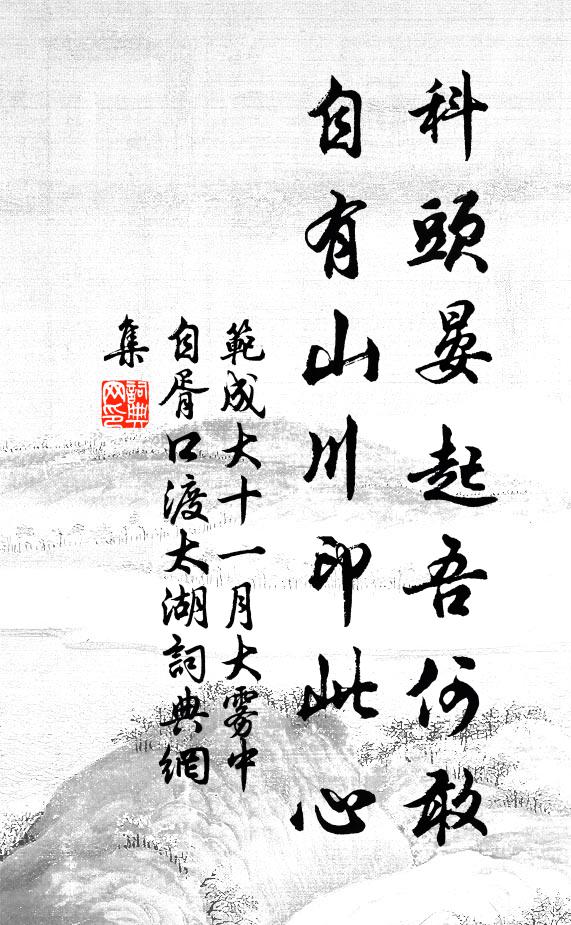 科頭晏起吾何敢
自有山川印此心
範成大十一月大霧中
自胥口渡太湖詞典網
集
詞典
网印